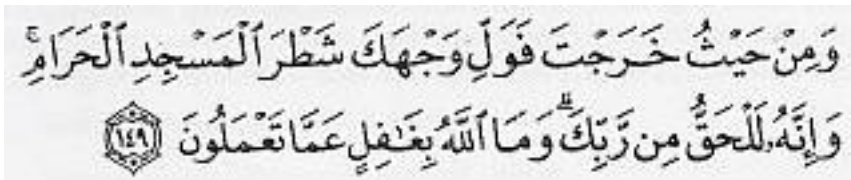 وَمِنْ حَيْثُ خَرَجْتَ فَوَلِّ وَجْهَكَ شَطْرَ ٱلْمَسْجِدِ ٱلْحَرَامِ ۖ
وَإِنَّهُۥ لَلْحَقُّ مِن رَّبِّكَ ۗ وَمَا ٱللَّهُ بِغَٰفِلٍ عَمَّا تَعْمَلُونَ ١٤٩